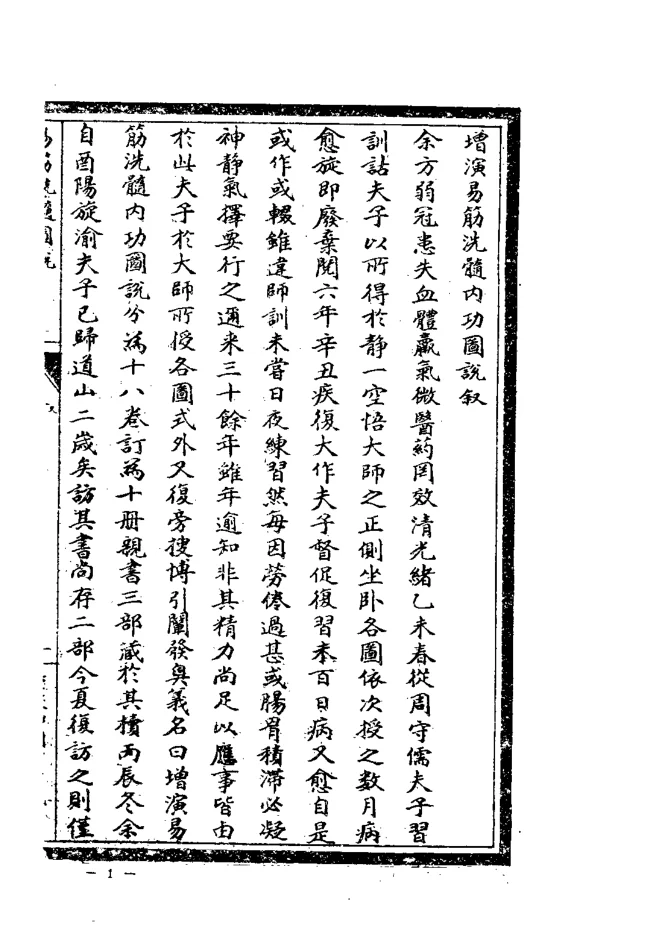 增演易筋洗髓內功圖說叙
余方弱冠患失血體羸氣微醫葯罔效清光緒乙未春從周守儒夫子習
訓詁夫子以所得於靜一空悟大師之正側坐卧各圖依次授之数月病
愈旋即廢棄閱六年辛丑疾復大作夫子督促復習未百日病又愈自是
或作或輟雖違師訓未嘗日夜練習然每因勞倦過甚或腸胃積滯必凝
神靜氣擇要行之邇来三十餘年雖年逾知非其精力尚足以應事皆由
於此夫子於大師所授各圖式外又復旁搜博引闡發奥義名曰增演易
筋洗髓內功圖說分為十八卷訂為十册親書三部藏於其櫝丙辰冬余
自酉陽旋渝夫子已歸道山二歲矣訪其書尚存二部今夏復訪之則僅
易筋洗髓圖說
— 1 —